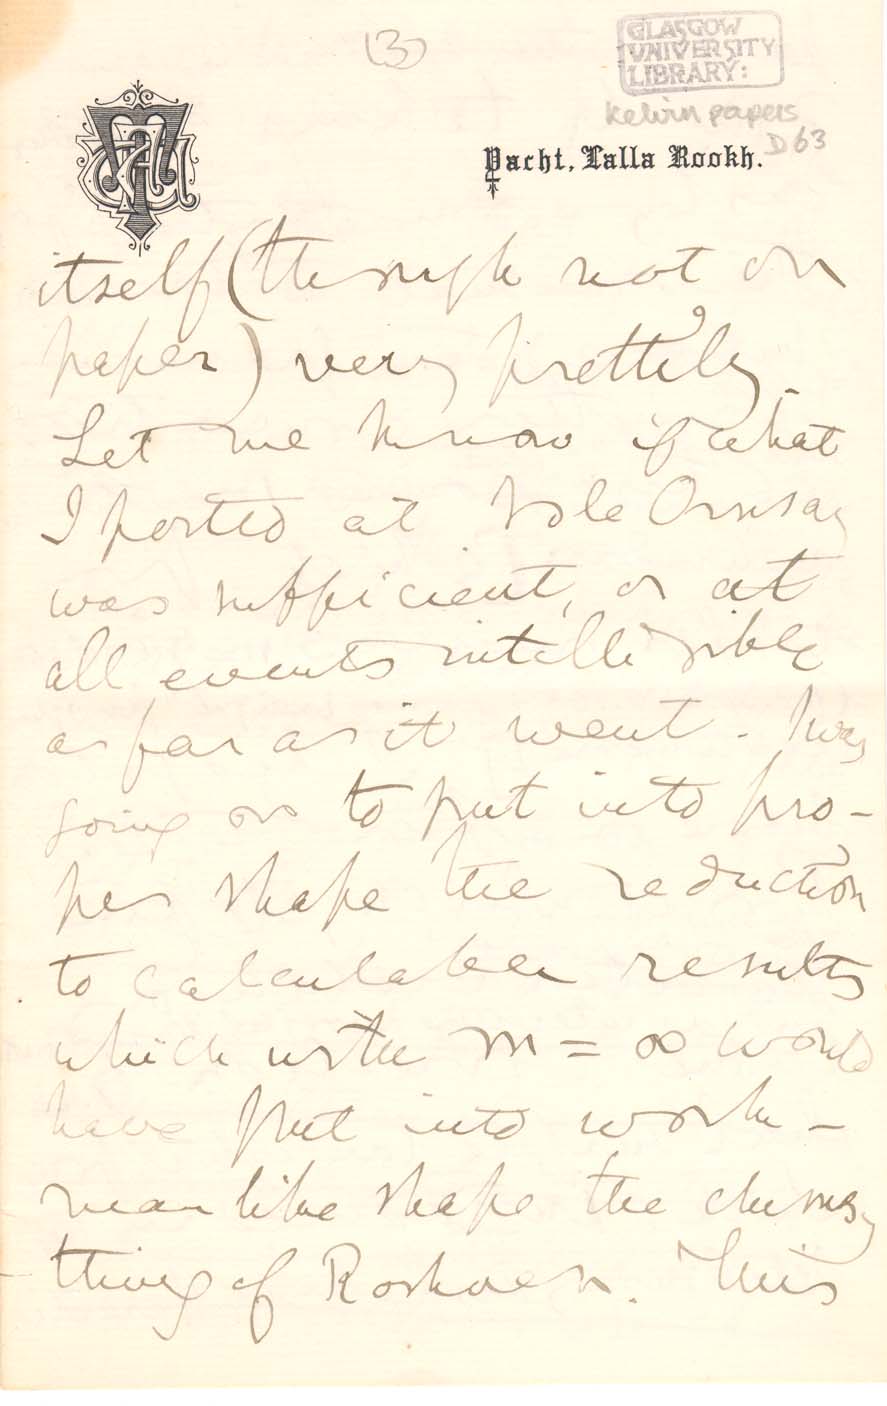 (3)
GLASGOW
UNIVERSITY
LIBRARY:
kelvin papers
D63
Yacht, Lalla Rookh.
itself (though not on
paper) very prettily.
Let me know if what
I posted at Isle Ornsay
was sufficient, or at
all events intelligible
as far as it went. I was
going on to put into pro-
per shape the reduction
to calculable results
which with m = ∞ would
have put into work-
manlike shape the clumsy
thing of This